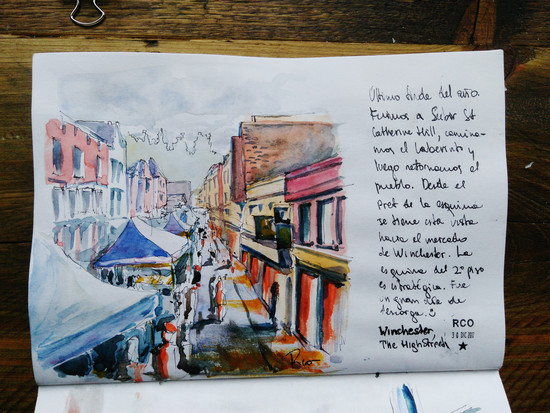 Último finde del año.
Fuimos a Subir St
Catherine Hill, camina-
mos el laberinto y
luego retornamos al
pueblo. Desde el
Pret de la esquina
se tiene esta vista
hacia el mercado
de Winchester. La
esquina del 2º piso
es estratégica. Fue
un gran día de
descarga.
Winchester
The HighStreet
RCO
30 DIC 2017
Rco